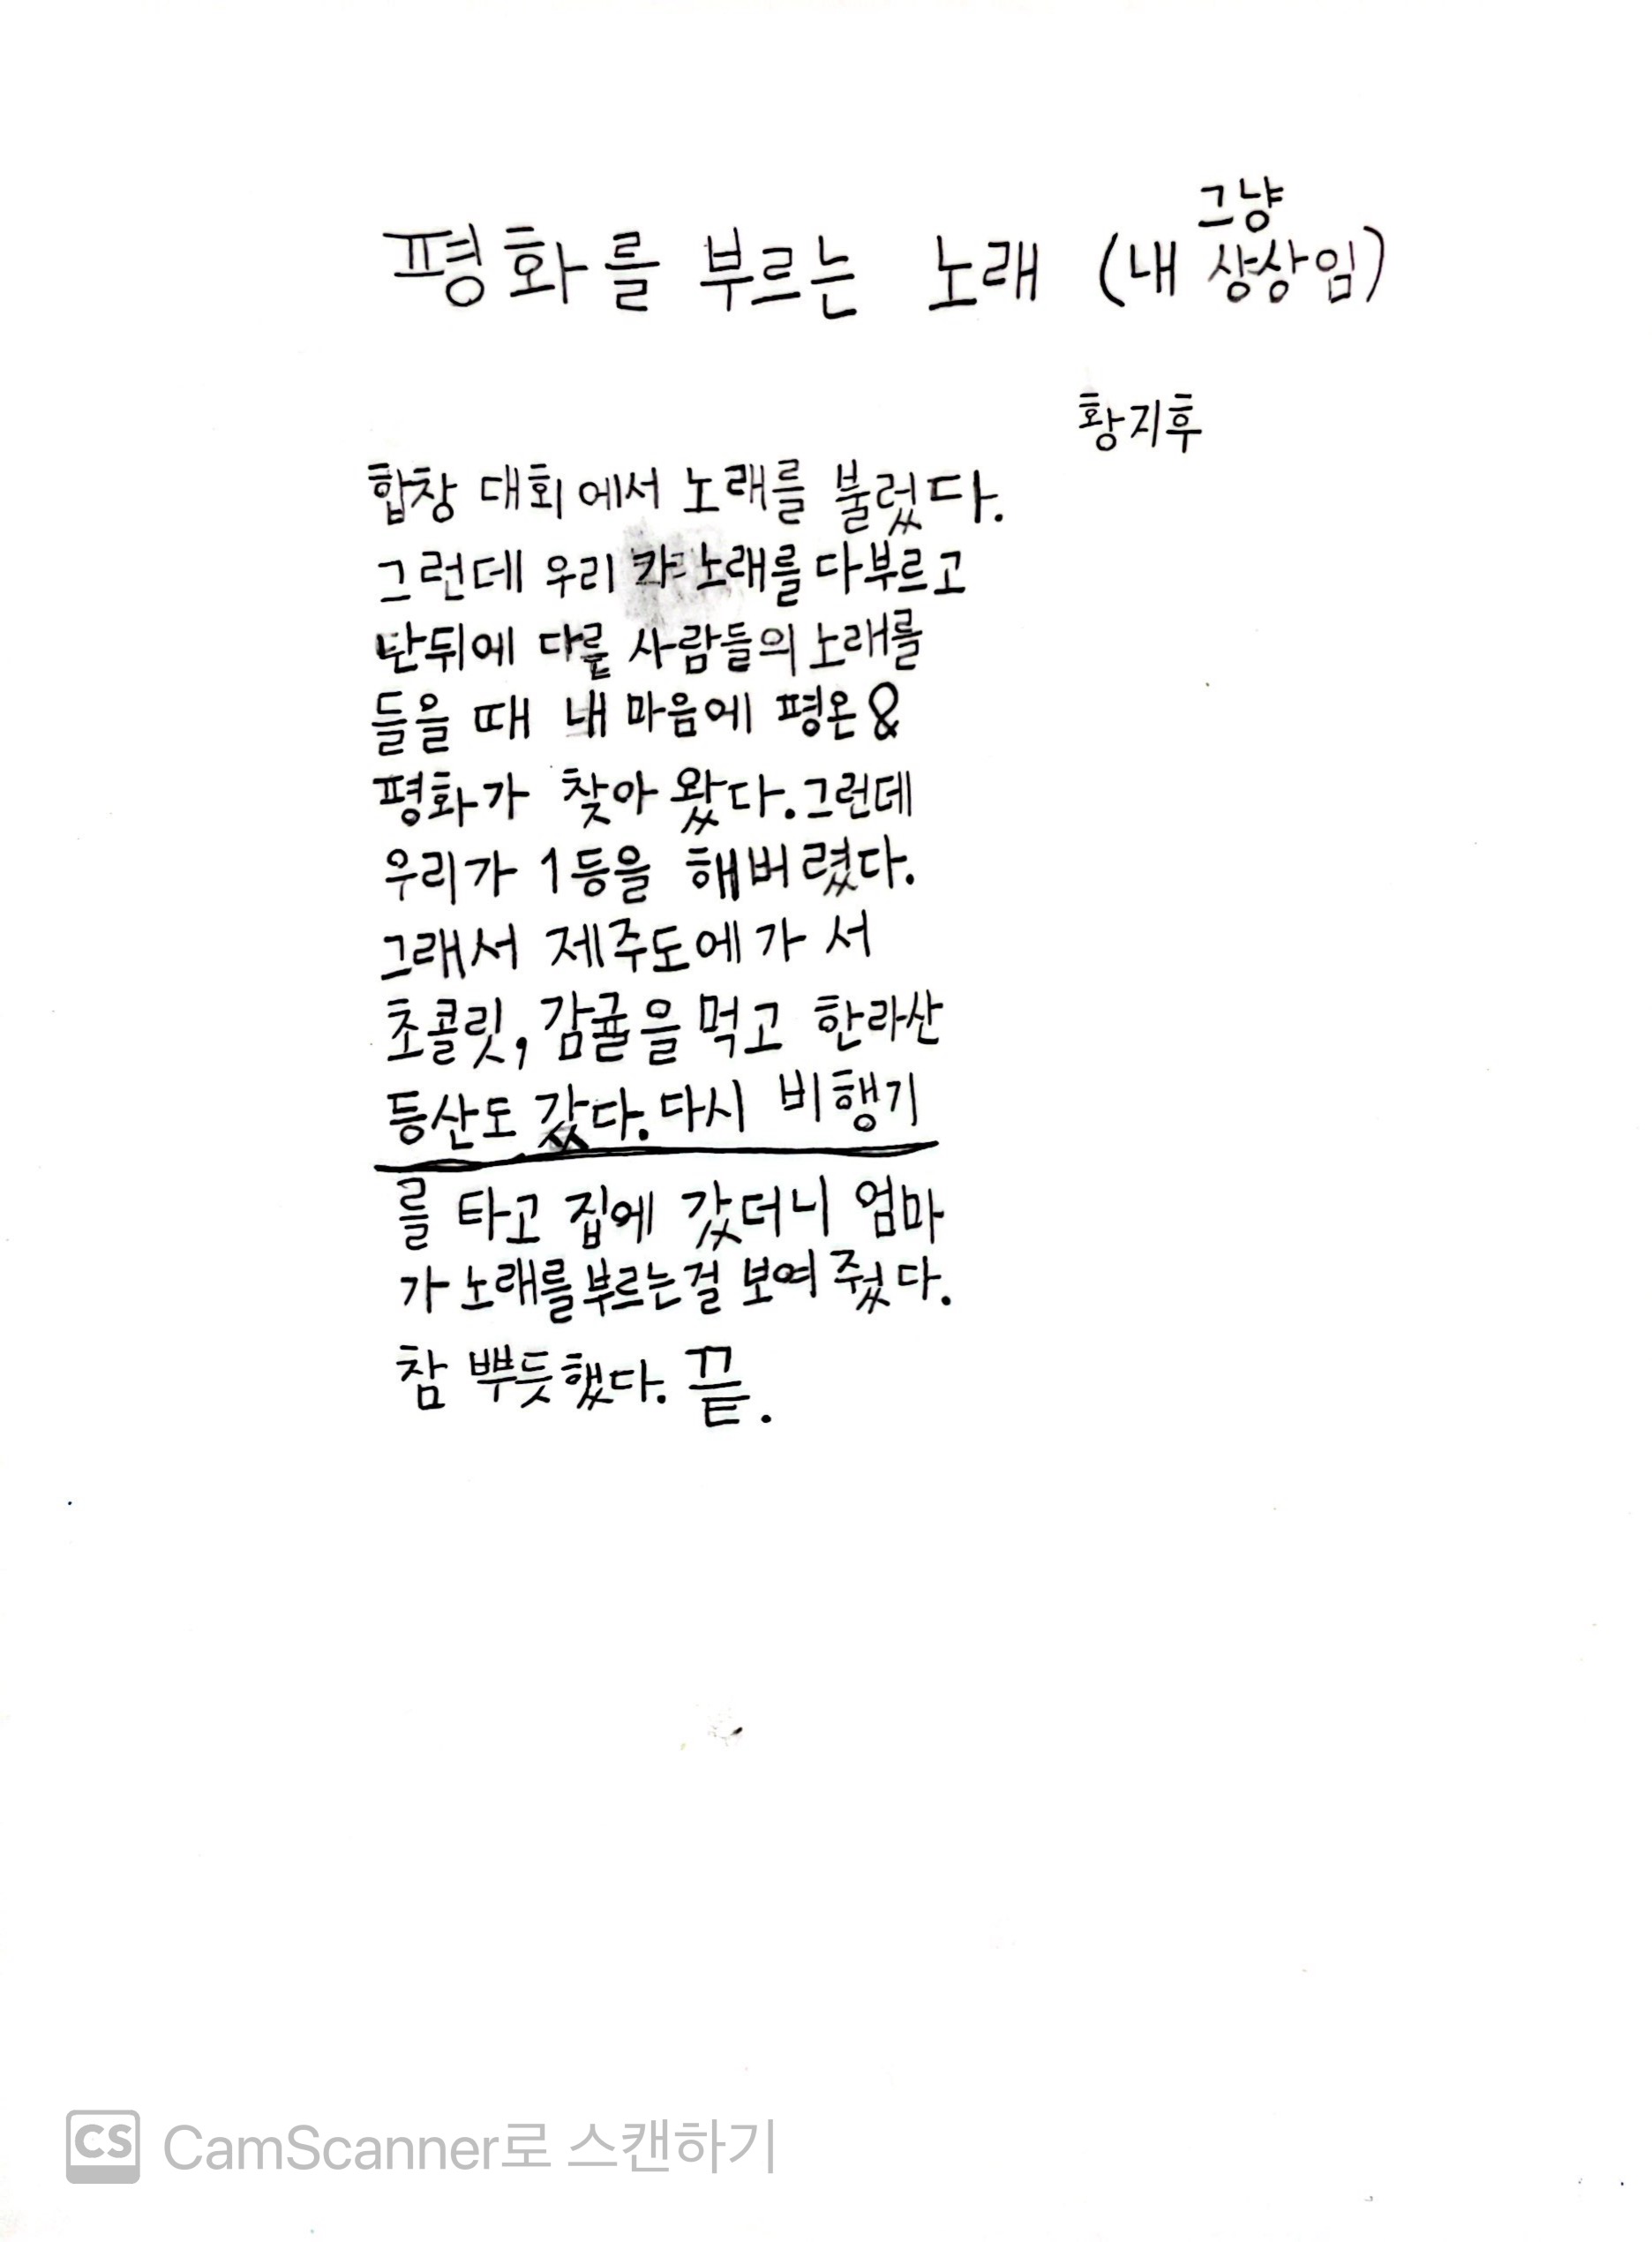 평화를 부르는 노래 (내 그냥 상상임)
황지후
합창 대회에서 노래를 불렀다.
그런데 우리가 노래를 다부르고
난뒤에 다른 사람들의 노래를
들을 때 내 마음에 평온&
평화가 찾아 왔다. 그런데
우리가 1등을 해버렸다.
그래서 제주도에가 서
초콜릿, 감귤을 먹고 한라산
등산도 갔다. 다시 비행기
를 타고 집에 갔더니 엄마
가 노래를 부르는걸 보여 줬다.
참 뿌듯했다. 끝.
CS CamScanner로 스캔하기